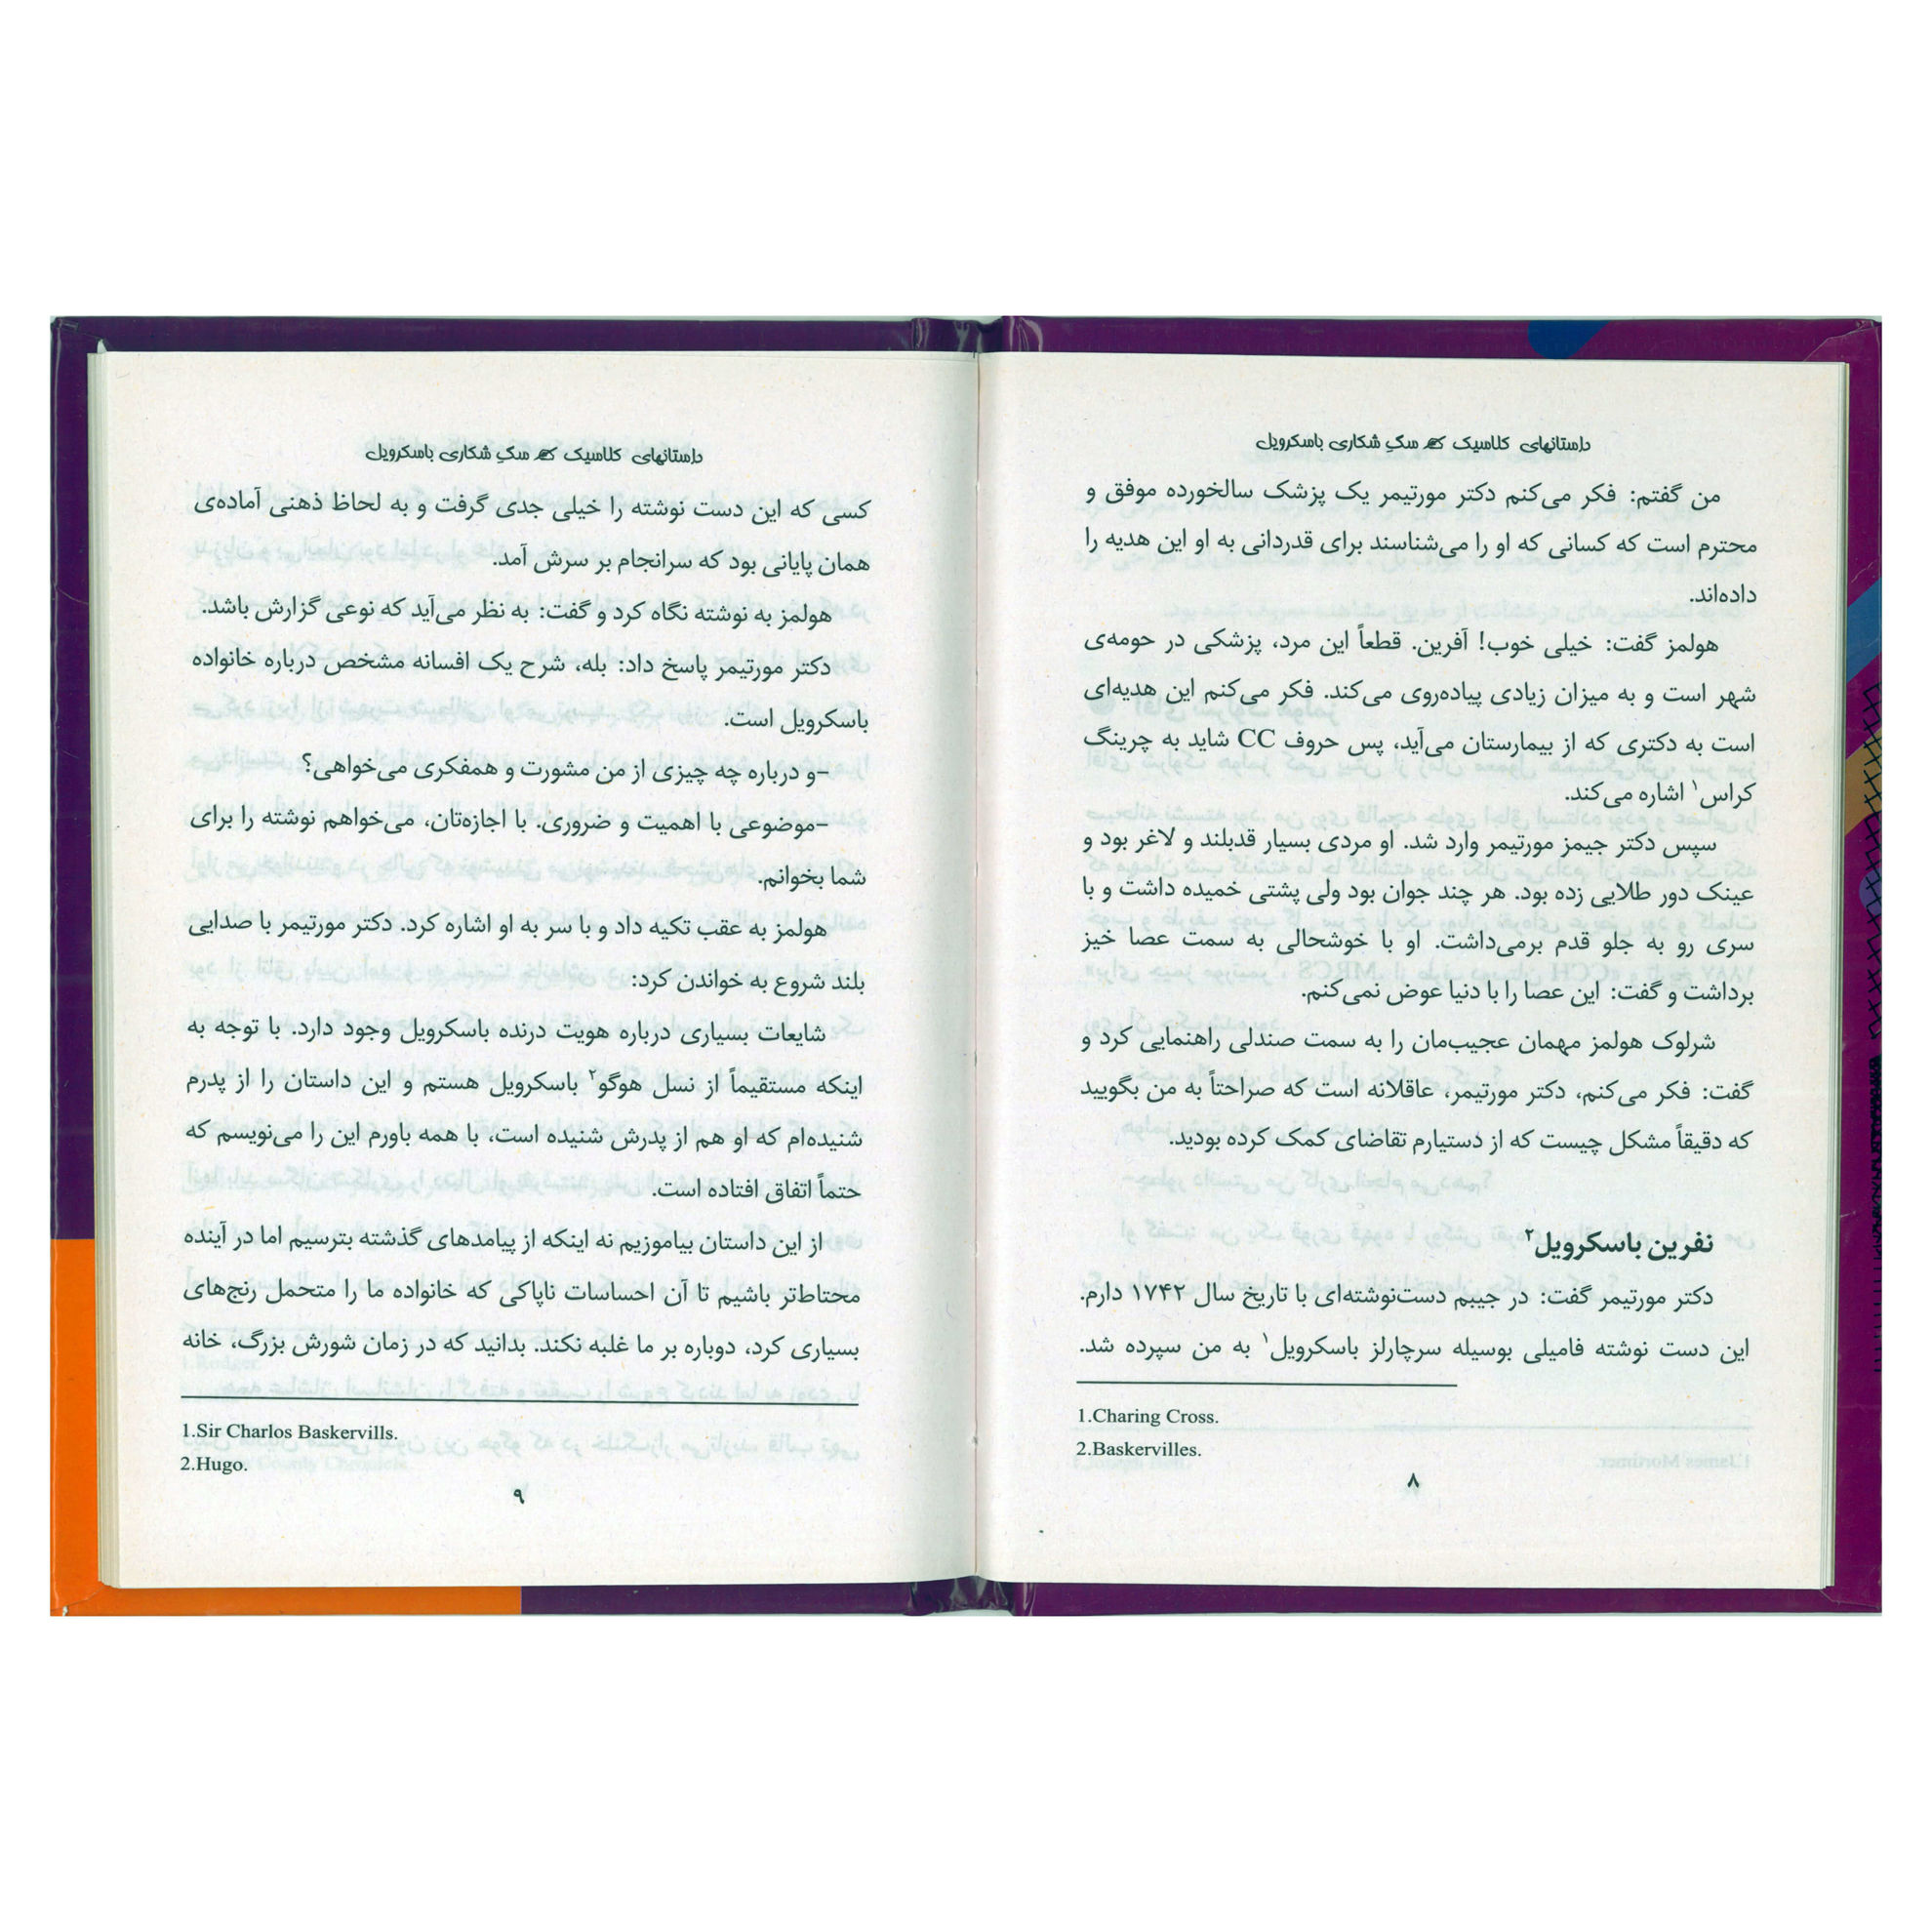 داستانهای کلاسیک سگ شکاری باسکرویل
من گفتم: فکر می‌کنم دکتر مورتیمر یک پزشک سالخورده موفق و
محترم است که کسانی که او را می‌شناسند برای قدردانی به او این هدیه را
داده‌اند.
هولمز گفت: خیلی خوب! آفرین. قطعاً این مرد، پزشکی در حومه‌ی
شهر است و به میزان زیادی پیاده‌روی می‌کند. فکر می‌کنم این هدیه‌ای
است به دکتری که از بیمارستان می‌آید، پس حروف CC شاید به چرینگ
کراس۱ اشاره می‌کند.
سپس دکتر جیمز مورتیمر وارد شد. او مردی بسیار قدبلند و لاغر بود و
عینک دور طلایی زده بود. هر چند جوان بود ولی پشتی خمیده داشت و با
سری رو به جلو قدم برمی‌داشت. او با خوشحالی به سمت عصا خیز
برداشت و گفت: این عصا را با دنیا عوض نمی‌کنم.
شرلوک هولمز مهمان عجیب‌مان را به سمت صندلی راهنمایی کرد و
گفت: فکر می‌کنم، دکتر مورتیمر، عاقلانه است که صراحتاً به من بگویید
که دقیقاً مشکل چیست که از دستیارم تقاضای کمک کرده بودید.
نفرین باسکرویل۲
دکتر مورتیمر گفت: در جیبم دست‌نوشته‌ای با تاریخ سال ۱۷۴۲ دارم.
این دست نوشته فامیلی بوسیله سرچارلز باسکرویل۱ به من سپرده شد.
1.Charing Cross.
2.Baskervilles.
۸
داستانهای کلاسیک سگ شکاری باسکرویل
کسی که این دست نوشته را خیلی جدی گرفت و به لحاظ ذهنی آماده‌ی
همان پایانی بود که سرانجام بر سرش آمد.
هولمز به نوشته نگاه کرد و گفت: به نظر می‌آید که نوعی گزارش باشد.
دکتر مورتیمر پاسخ داد: بله، شرح یک افسانه مشخص درباره خانواده
باسکرویل است.
-و درباره چه چیزی از من مشورت و همفکری می‌خواهی؟
-موضوعی با اهمیت و ضروری. با اجازه‌تان، می‌خواهم نوشته را برای
شما بخوانم.
هولمز به عقب تکیه داد و با سر به او اشاره کرد. دکتر مورتیمر با صدایی
بلند شروع به خواندن کرد:
شایعات بسیاری درباره هویت درنده باسکرویل وجود دارد. با توجه به
اینکه مستقیماً از نسل هوگو۲ باسکرویل هستم و این داستان را از پدرم
شنیده‌ام که او هم از پدرش شنیده است، با همه باورم این را می‌نویسم که
حتماً اتفاق افتاده است.
از این داستان بیاموزیم نه اینکه از پیامدهای گذشته بترسیم اما در آینده
محتاط‌تر باشیم تا آن احساسات ناپاکی که خانواده ما را متحمل رنج‌های
بسیاری کرد، دوباره بر ما غلبه نکند. بدانید که در زمان شورش بزرگ، خانه
1.Sir Charlos Baskervills.
2.Hugo.
۹